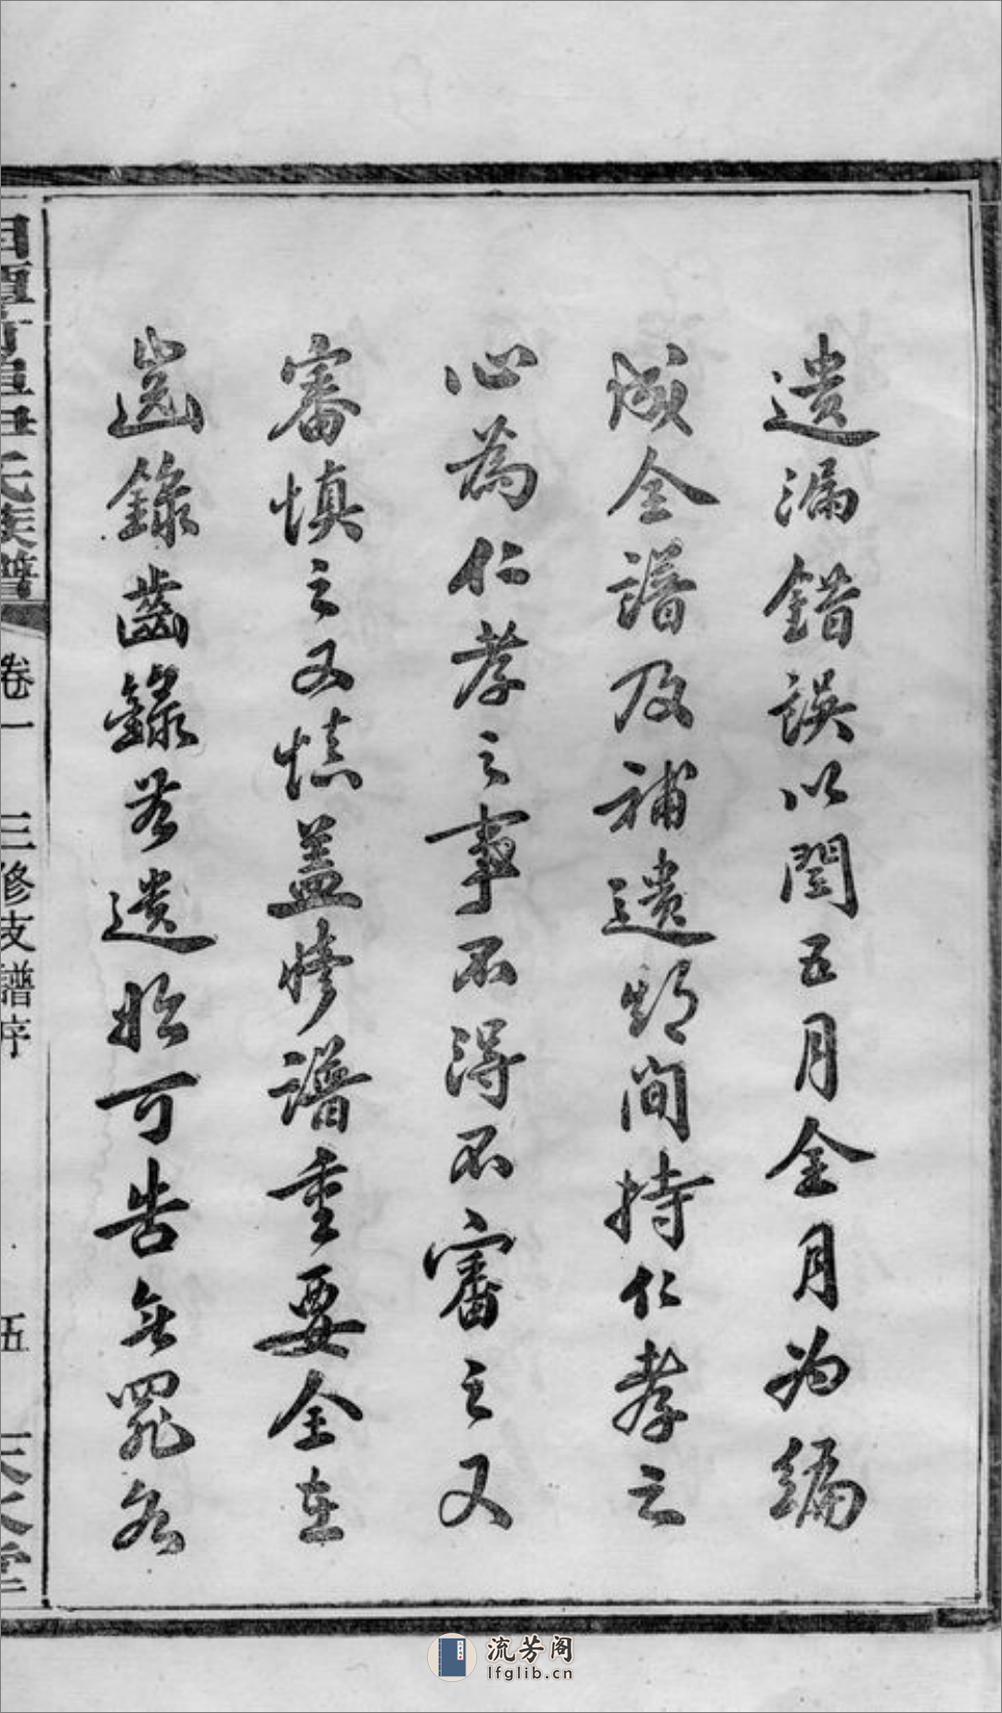 遺漏錯誤以閏五月全月为編
成全譜及補遺期間持仁孝之
心為仁孝之事不得不審之又
審慎之又慎盖修譜重要全在
錄齒錄遺始可告無罪
氏族譜
卷一
三修支譜序
伍
堂
流芳阁
lfglib.cn